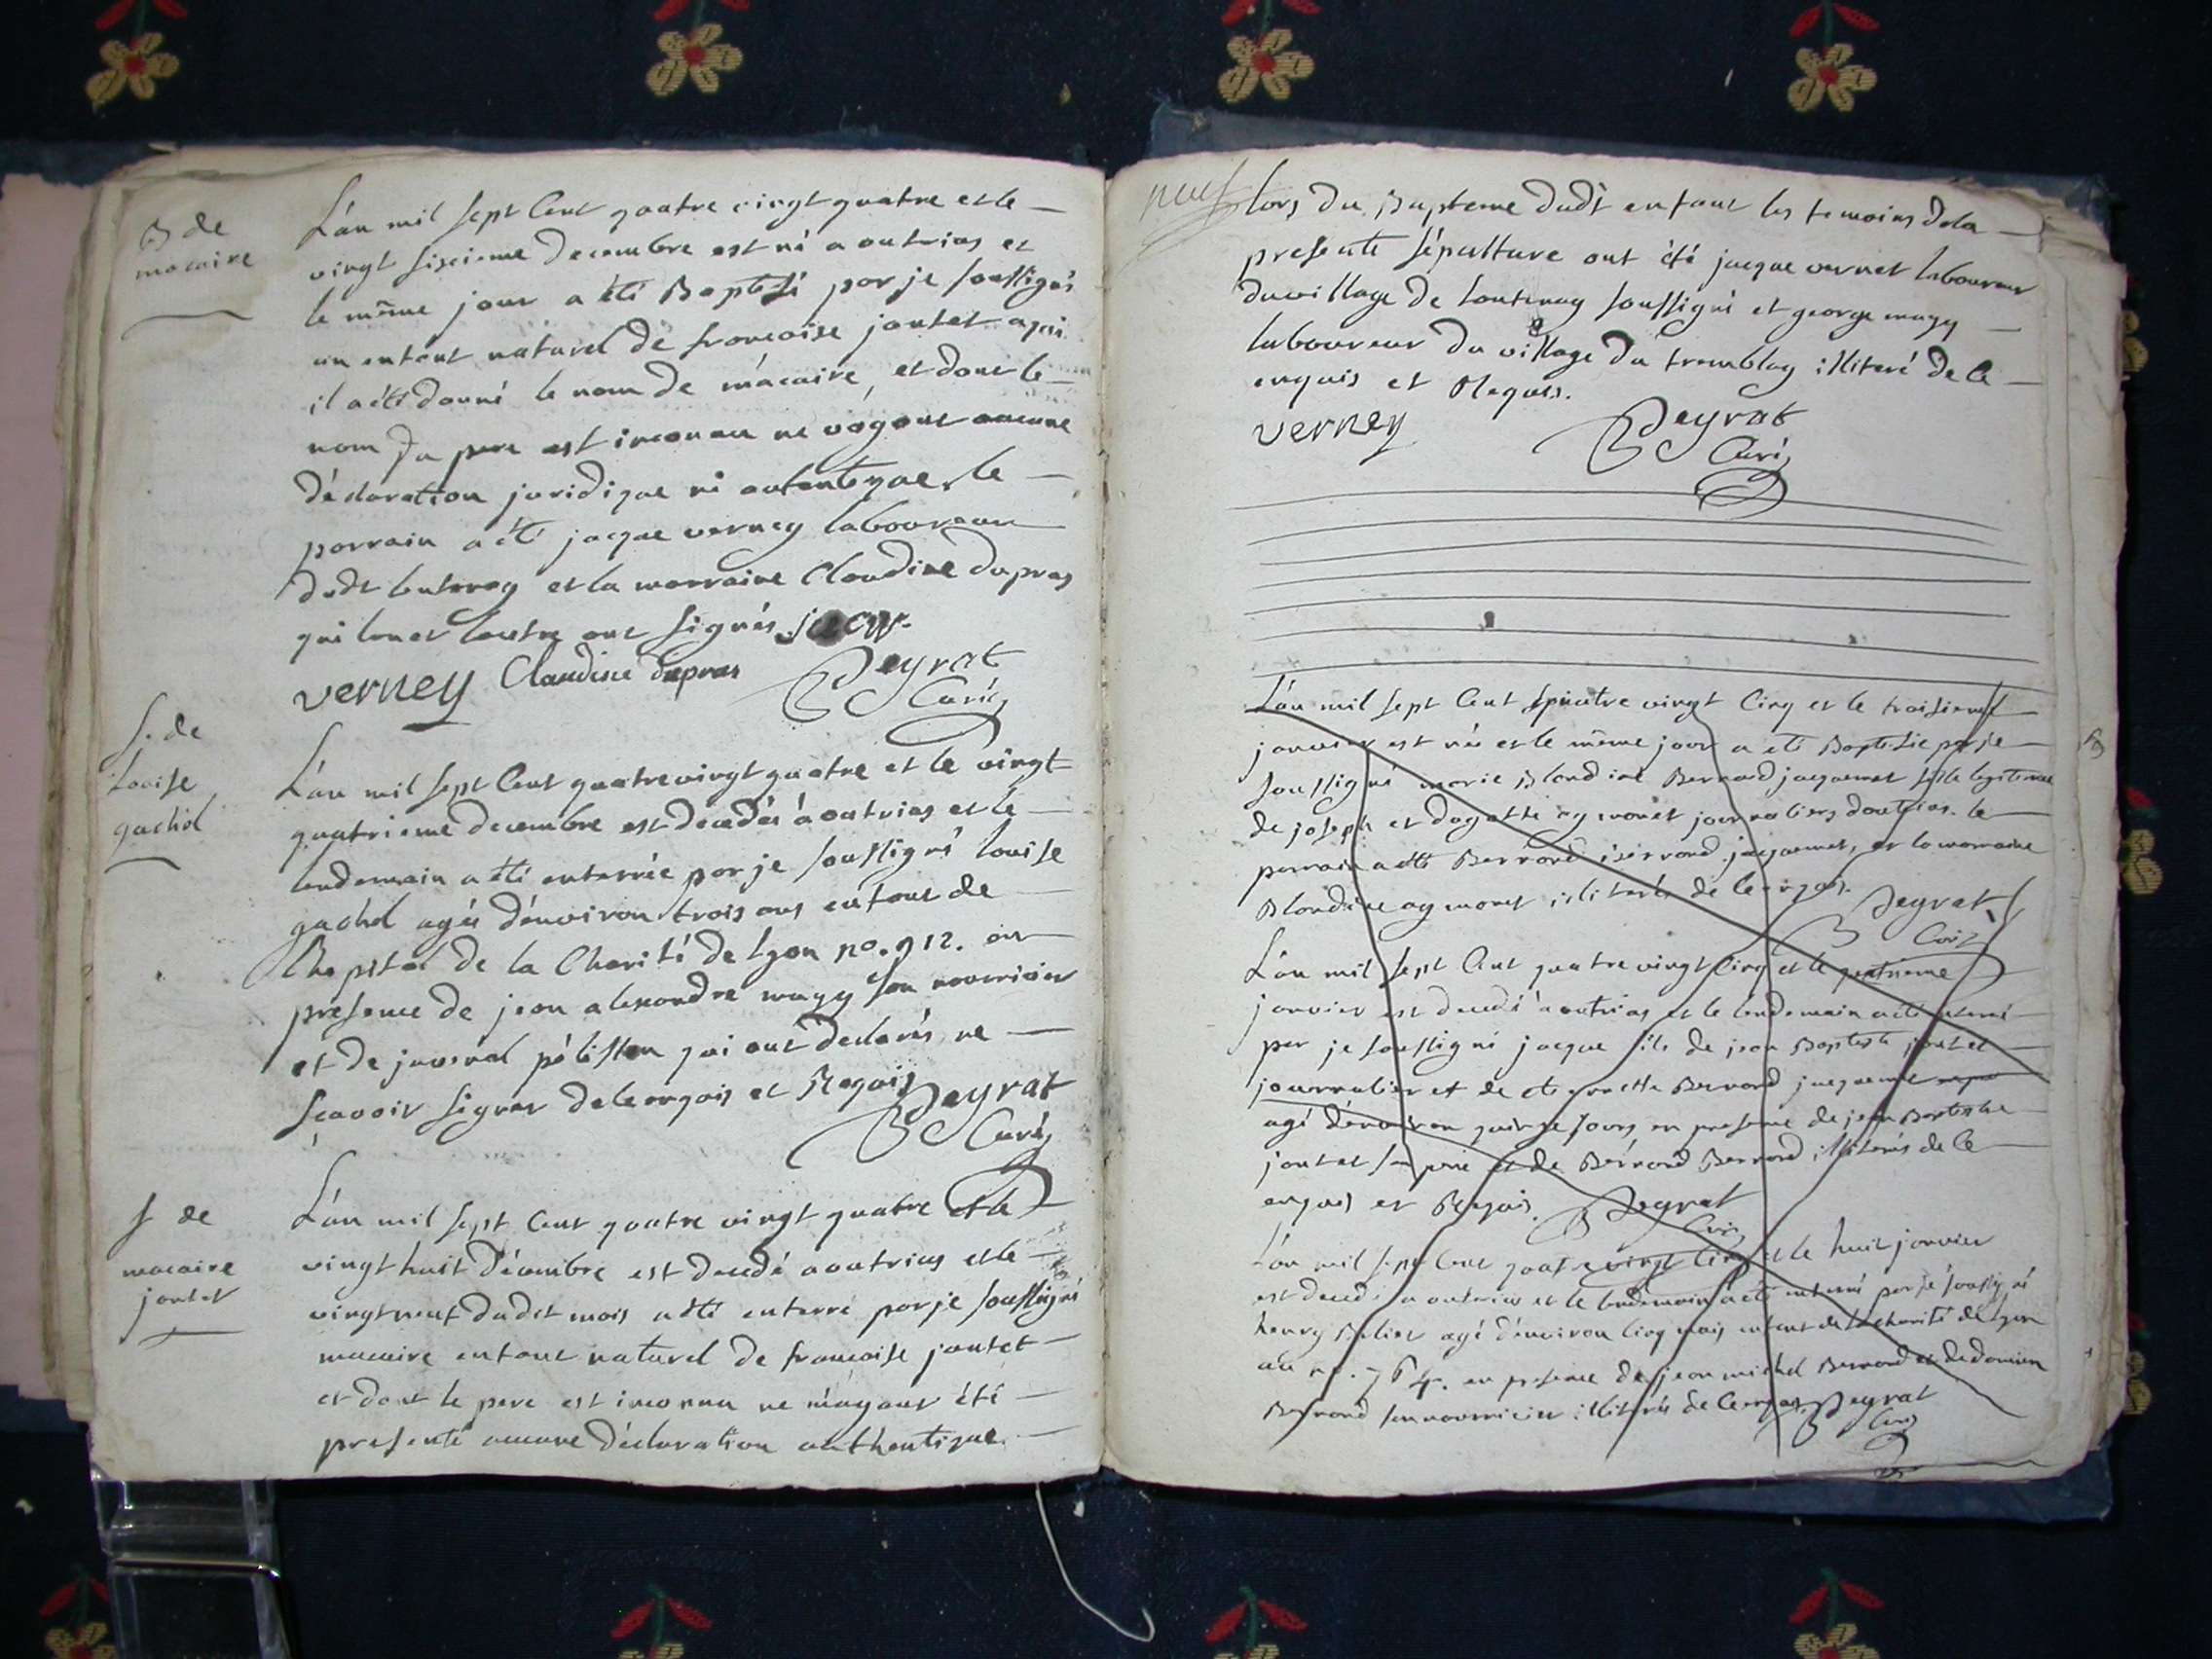 B de
macaire
L'an mil sept Cent quatre vingt quatre et le
vingt sixieme decembre est né a outrias et
le même jour a été Baptisé par je soussigné
un enfant naturel de francoise joutet a qui
il a été donné le nom de macaire, et dont le
nom du pere est inconnu ne voyant aucune
déclaration juridique ni autentique, le
parrain a été jacque verney laboureur
dudt lentenay et la marraine Claudine dupras
qui lun et lautre ont signés
verney Claudine dupras Peyrat
Curé
S. de
Louise
gachol
L'an mil sept Cent quatre vingt quatre et le vingt
quatrieme decembre est decedée à outrias et le
lendemain a été enterrée par je soussigné louise
gachol agée d'environ trois ans enfant de
lhopital de la Charité de lyon no. 912. en
presence de jean alexandre mugy son nourricier
et de juvenal pélisson qui ont declarés ne
scavoir signer de ce enquis et Requis Peyrat
Curé
S de
macaire
joutet
L'an mil sept Cent quatre vingt quatre et le
vingt huit décembre est decedé a outrias et le
vingt neuf dudet mois a été enterré par je soussigné
macaire enfant naturel de francoise joutet
et dont le pere est inconnu ne m'ayant été
presenté aucune déclaration authentique
neuf
lors du Bapteme dudt enfant les temoins de la
presente sépulture ont été jacque vernet laboureur
du village de lentenay soussigné et george mugy
laboureur du village du tremblay illiteré de ce
enquis et Requis.
verney Peyrat
Curé
L'an mil sept Cent quatre vingt Cinq et le troisieme
janvier est née et le même jour a été Baptisée par je
soussigné marie Blandine Bernard jacquemet fille legitime
de joseph et dagathe aymonet journaliers doutrias. le
parrain a été Bernard jacquemet, et la marraine
Blandine aymonet illiterés de ce enquis. Peyrat
Curé
B
L'an mil sept Cent quatre vingt Cinq et le quatrieme
janvier est decedé a outrias et le lendemain a été enterré
par je soussigné jacque fils de jean Baptiste joutet
journalier et de Bernard jacquemet
agé d'environ quinze jours en presence de jean Baptiste
joutet son pere et de Bernard Bernard illiterés de ce
enquis et Requis. Peyrat
Curé
L'an mil sept Cent quatre vingt Cinq et le huit janvier
est decedé a outrias et le lendemain a été enterré par je soussigné
henry agé d'environ Cinq mois enfant de la charité de lyon
au no. 764. en presence de jean michel Bernard et de
Bernard son nourricier illiterés de ce enquis Peyrat
Curé